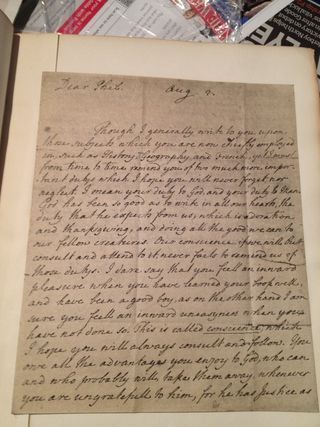 Dear Phil. Aug 2.
Though I generally write to you upon
those subjects which you are now chiefly employed
in, such as History, Geography, and French, yet I must
from time to time remind you of two much more impor-
tant dutys which I hope you will never forget nor
neglect. I mean your duty to God, and your duty to Man.
God has been so good as to write in all our hearts, the
duty that he expects from us, which is adoration
and thanksgiving, and doing all the good we can to
our fellow creatures. Our conscience, if we will but
consult and attend to it, never fails to remind us of
those dutys. I dare say that you feel an inward
pleasure when you have learned your book well,
and have been a good boy, as on the other hand I am
sure you feell an inward uneasyness when you
have not done so. This is called conscience, which
I hope you will always consult and follow. You
owe all the advantages you enjoy to God, who can
and who probably will take them away, whenever
you are ungratefull to him, for he has justice as